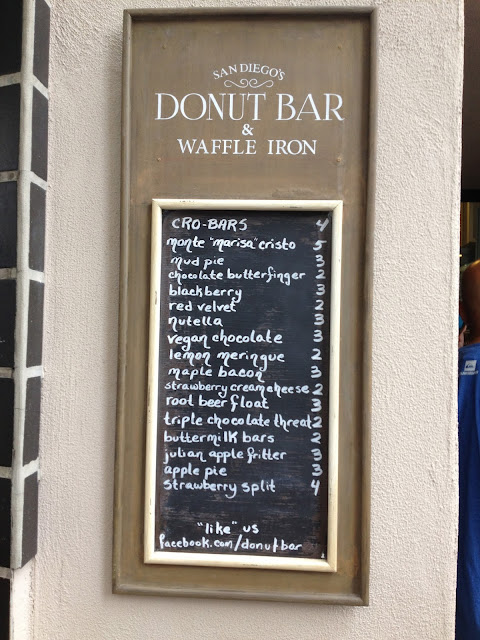 SAN DIEGO'S
DONUT BAR
&
WAFFLE IRON
CRO-BARS 4
monte "marisa" cristo 5
mud pie 3
chocolate butterfinger 2
blackberry 3
red velvet 2
nutella 3
vegan chocolate 3
lemon meringue 2
maple bacon 3
strawberry creamcheese 2
root beer float 3
triple chocolate threat 2
buttermilk bars 2
julian apple fritter 3
apple pie 3
strawberry split 4
"like" us
facebook.com/donutbar